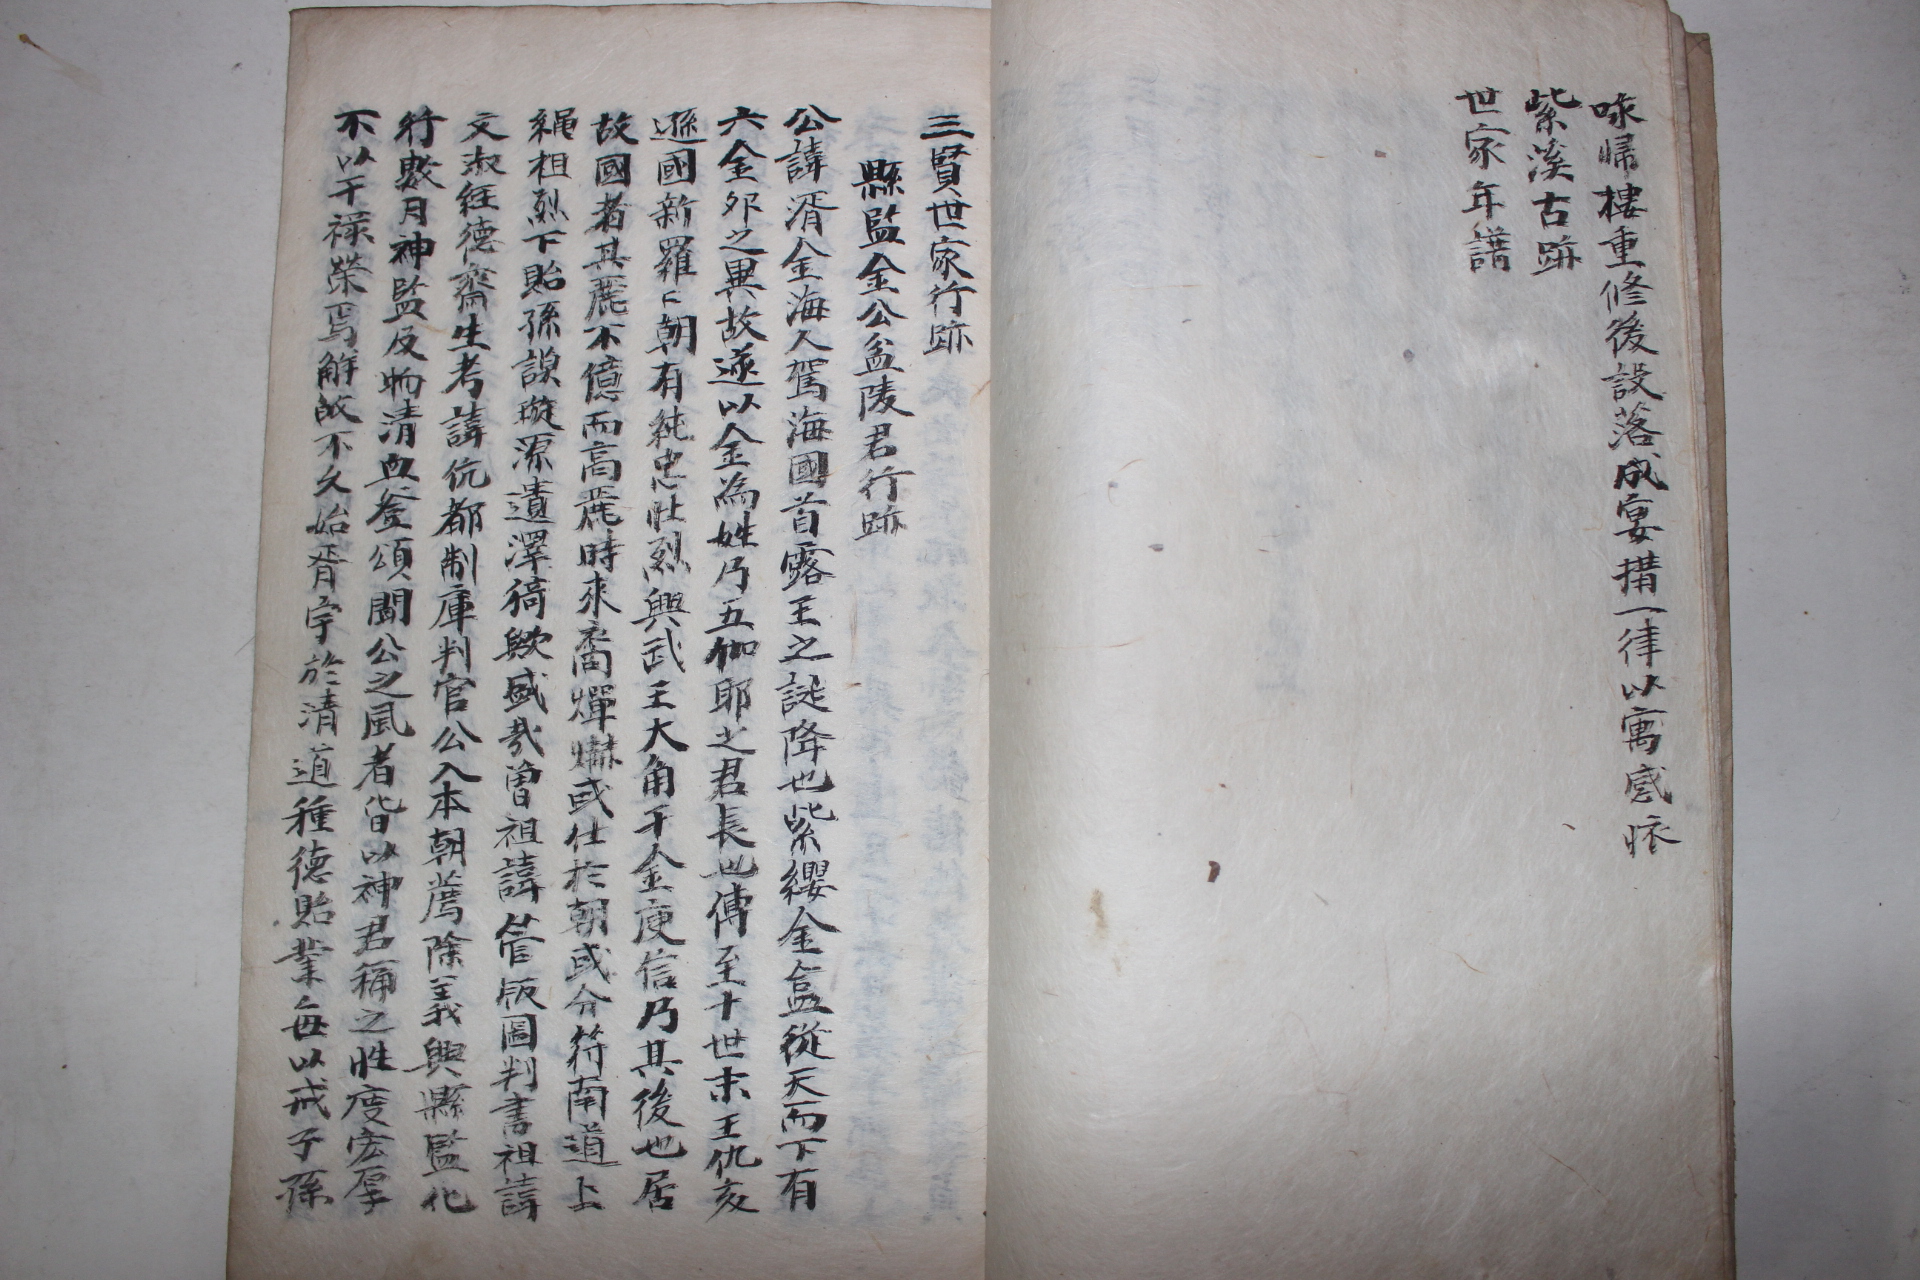 咏帰樓重修後設落成宴搆一律以寓感懷
紫溪古跡
世家年譜
三賢世家行跡
縣監金公盆陵君行跡
公諱湑金海人駕海國首露王之誕降也紫纓金盒從天而下有
六金卵之異故遂以金為姓乃五伽耶之君長也傳至十世末王仇亥
遜國新羅〻朝有純忠壯烈興武王大角干金庾信乃其後也居
故國者其麗不億而高麗時來裔燀爀或仕於朝或分符南道上
繩祖烈下貽孫謨璇源遺澤猗歟盛哉曾祖諱管版圖判書祖諱
文淑経德齋生考諱伉都制庫判官公入本朝薦除義興縣監化
行數月神監及物清血登頌聞公之風者皆以神君稱之性度宏厚
不以干禄榮焉解故不久始胥宇於清道種德貽業每以戒子孫